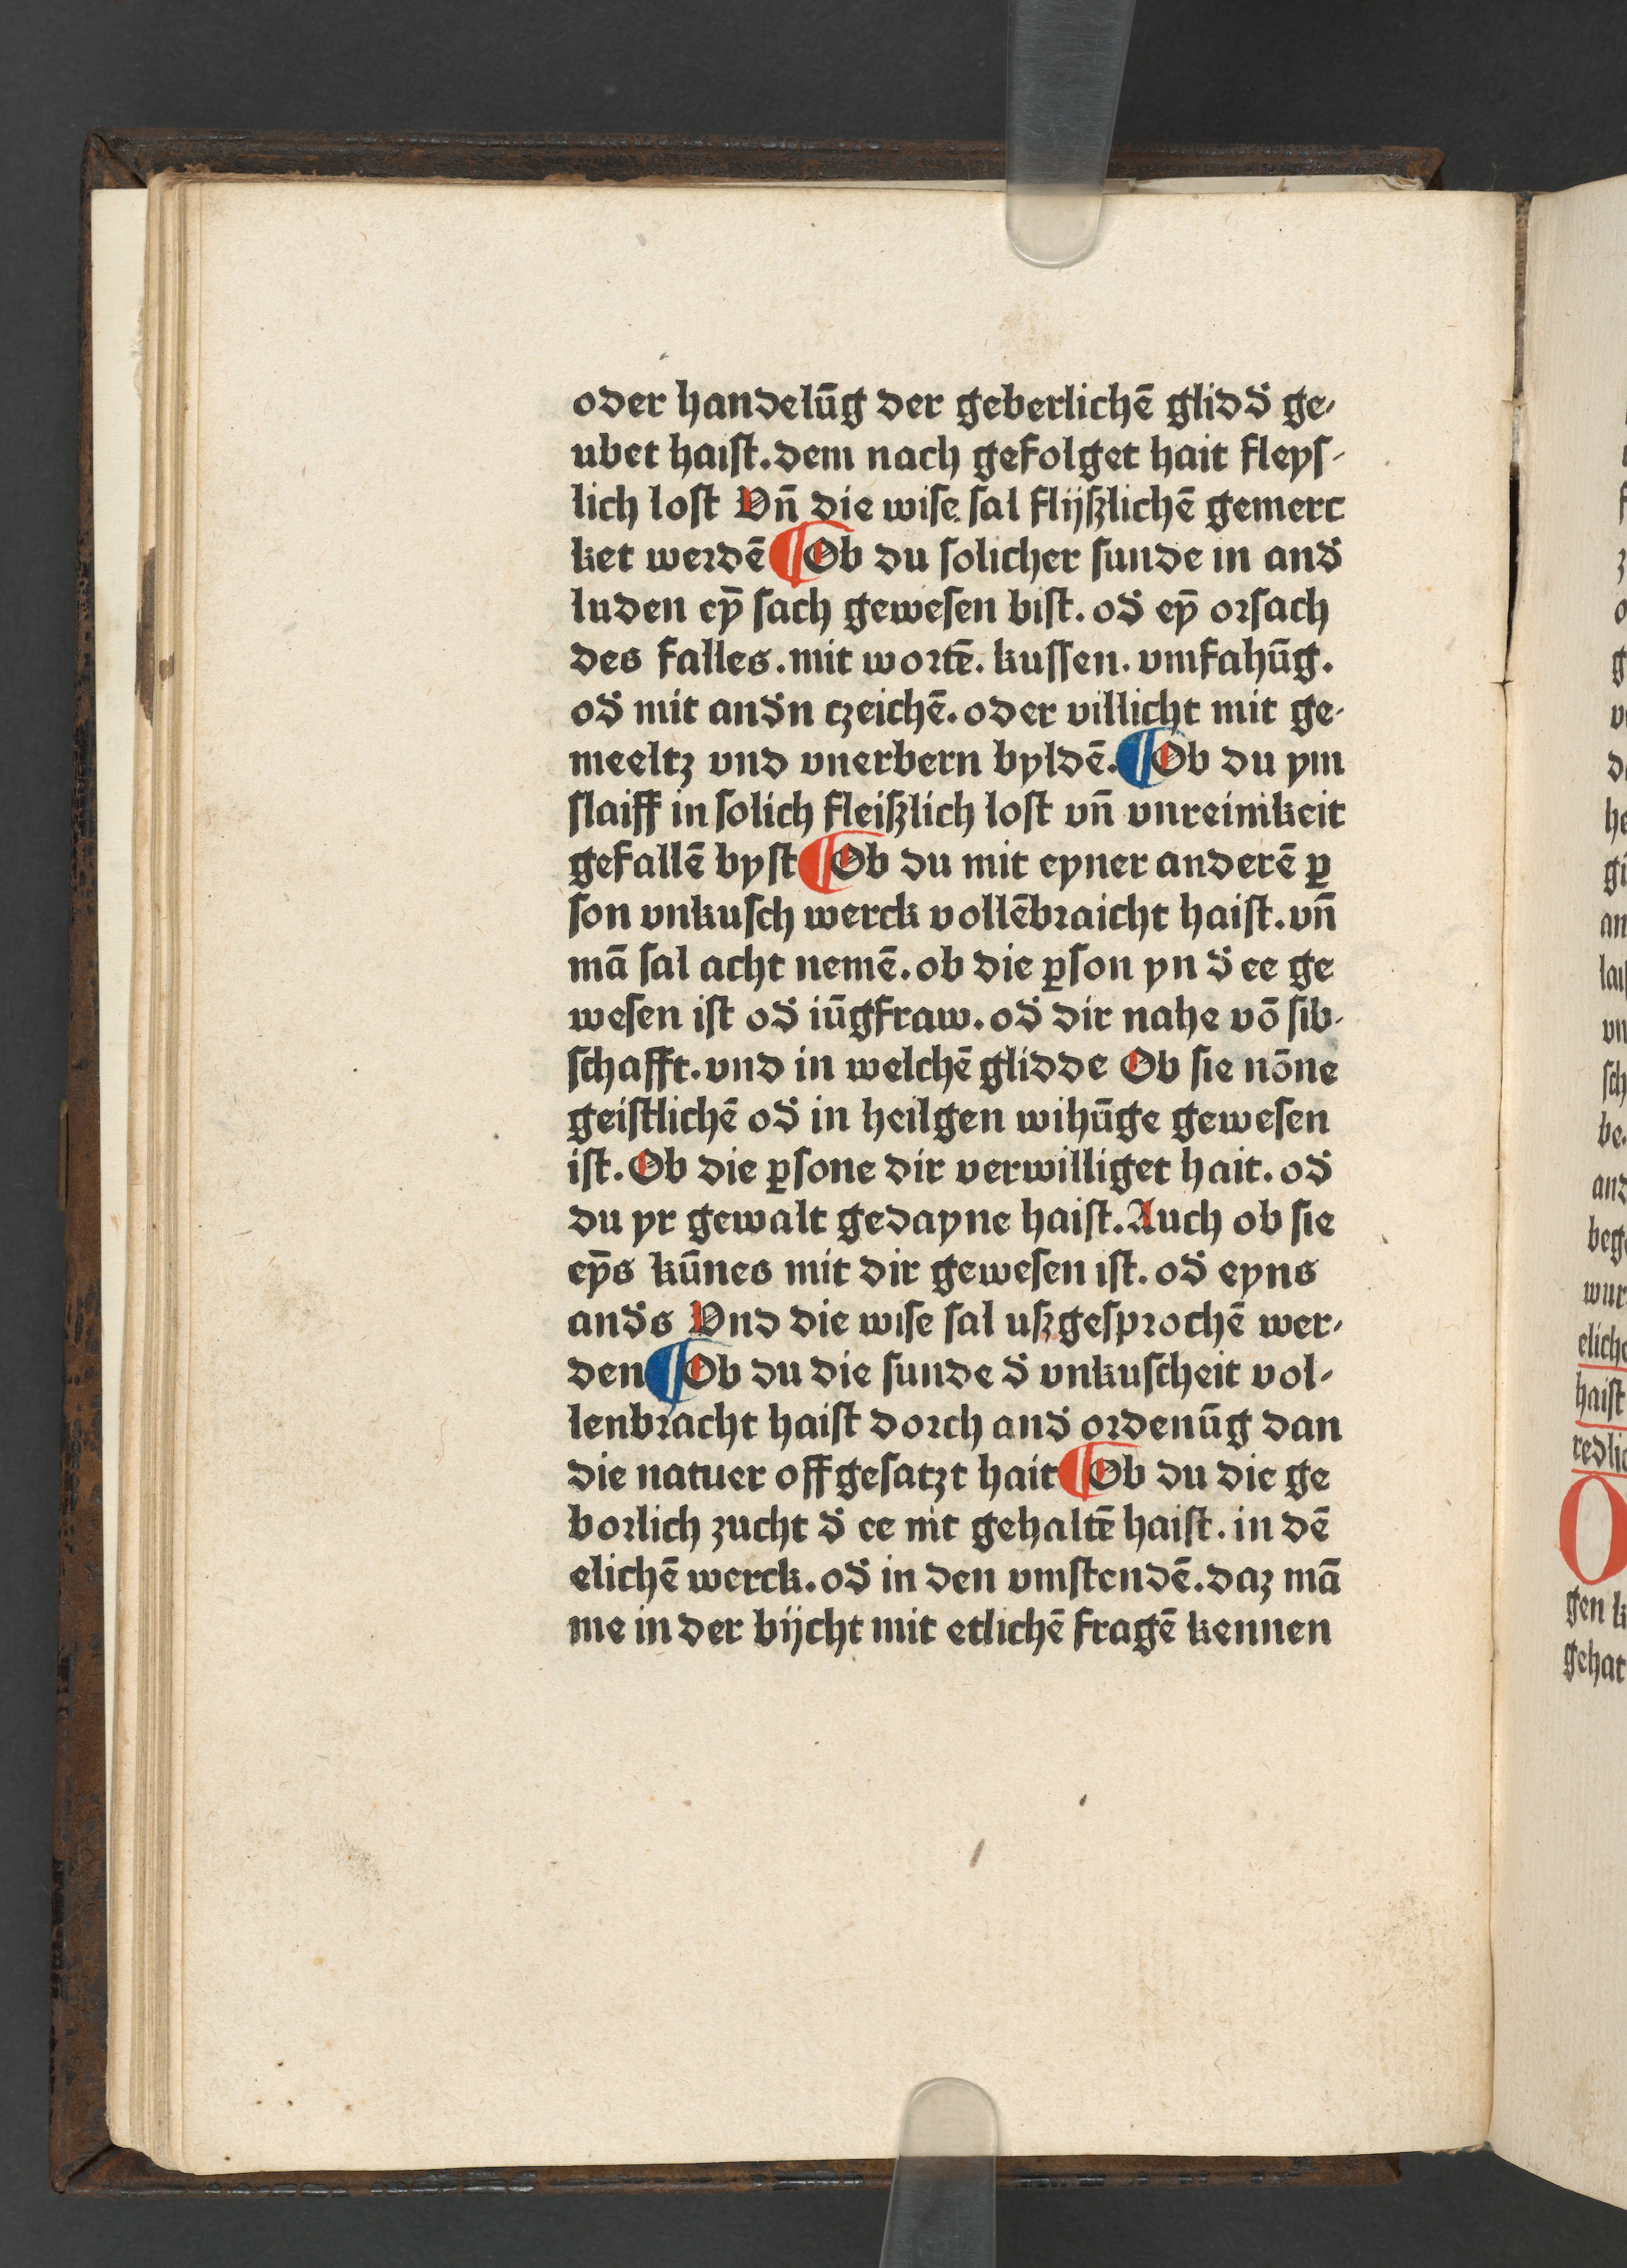 oder handelūg der geberlichē glidď ge-
ubet haiſt. dem nach gefolget hait fleyſ-
lich loſt Vn̄ die wiſe ſal flijßlichē gemerc
ket werdē ¶ Ob du ſolicher ſunde in anď
luden eȳ ſach geweſen biſt. oď eȳ orſach
des falles. mit wortē. kuſſen. vmfahūg.
oď mit anďn tzeichē. oder villicht mit ge-
meeltz vnd vnerbern byldē. ¶ Ob du ym
ſlaiff in ſolich fleißlich loſt vn̄ vnreinikeit
gefallē byſt ¶ Ob du mit eyner anderē ꝑ
ſon vnkuſch werck vollēbraicht haiſt. vn̄
mā ſal acht nemē. ob die ꝑſon yn ď ee ge
weſen iſt oď iūgfraw. oď dir nahe vō ſib-
ſchafft. vnd in welchē glidde Ob ſie nōne
geiſtlichē oď in heilgen wihūge geweſen
iſt. Ob die ꝑſone dir verwilliget hait. oď
du yr gewalt gedayne haiſt. Auch ob ſie
eȳs kūnes mit dir geweſen iſt. oď eyns
anďs Vnd die wiſe ſal uſzgeſprochē wer-
den ¶ Ob du die ſunde ď vnkuſcheit vol-
lenbracht haiſt dorch anď ordenūg dan
die natuer offgeſatzt hait ¶ Ob du die ge
borlich zucht ď ee nit gehaltē haiſt. in dē
elichē werck. oď in den vmſtendē. daz mā
me in der bijcht mit etlichē fragē kennen
an
vn
ſch
be.
and
wur
elich
haiſt
redlic
O
gen k
gehat